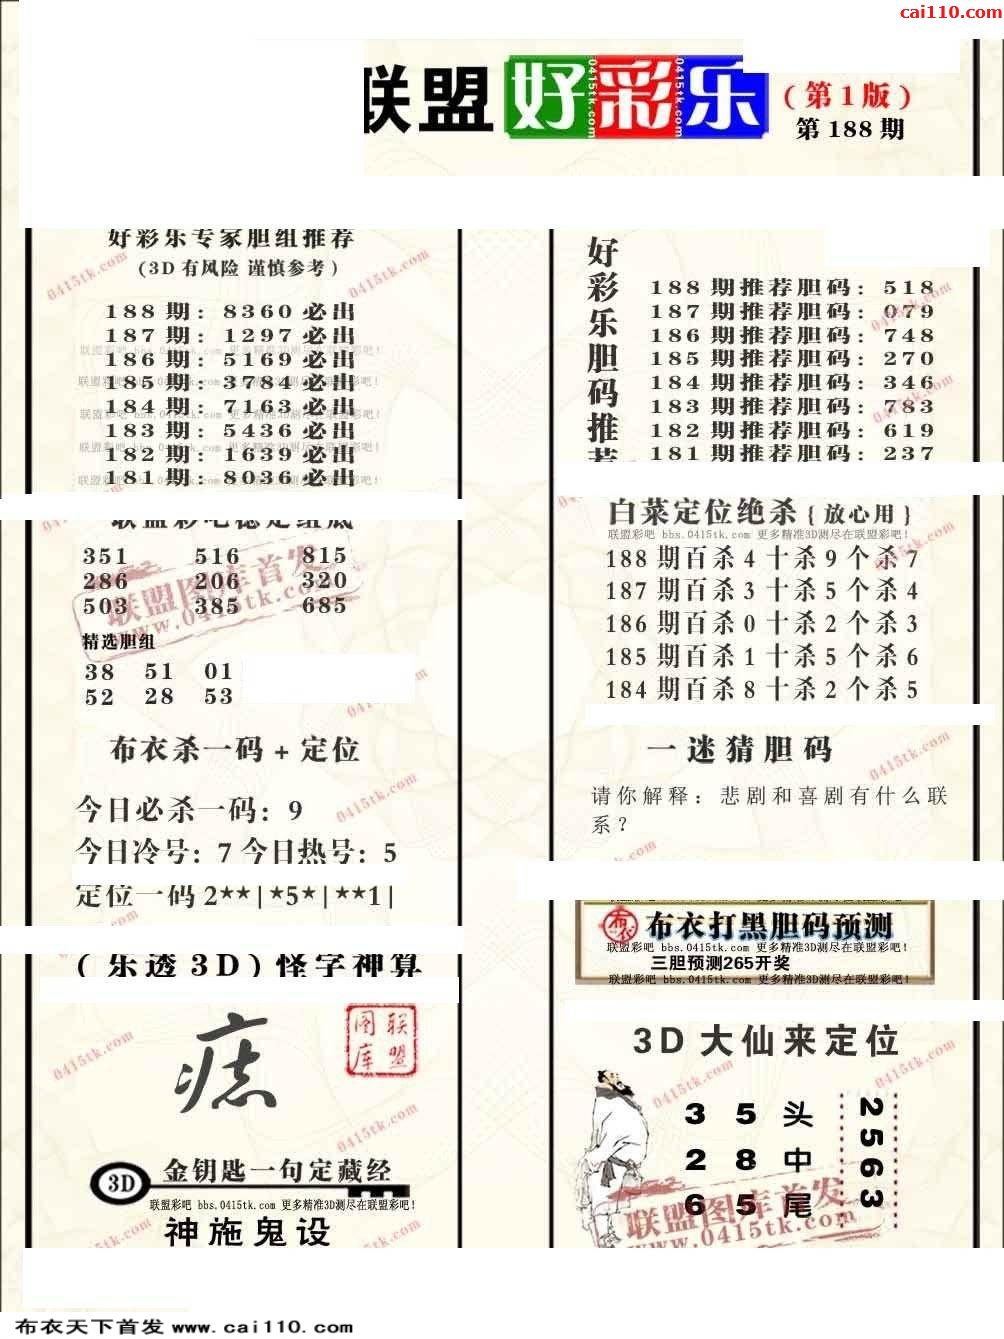 cai110.com
联盟好彩乐
(第1版)
第188期
好彩乐专家胆组推荐
(3D有风险 谨慎参考)
188期: 8360必出
187期: 1297必出
186期: 5169必出
185期: 3784必出
184期: 7163必出
183期: 5436必出
182期: 1639必出
181期: 8036必出
好彩乐胆码推荐
188期推荐胆码: 518
187期推荐胆码: 079
186期推荐胆码: 748
185期推荐胆码: 270
184期推荐胆码: 346
183期推荐胆码: 783
182期推荐胆码: 619
181期推荐胆码: 237
351 516 815
286 206 320
503 385 685
精选胆组
38 51 01
52 28 53
白菜定位绝杀{放心用}
联盟彩吧 bbs.0415tk.com 更多精准3D测尽在联盟彩吧!
188期百杀4十杀9个杀7
187期百杀3十杀5个杀4
186期百杀0十杀2个杀3
185期百杀1十杀5个杀6
184期百杀8十杀2个杀5
布衣杀一码+定位
今日必杀一码: 9
今日冷号: 7今日热号: 5
定位一码2**|*5*|**1|
一迷猜胆码
请你解释: 悲剧和喜剧有什么联
系?
布衣打黑胆码预测
联盟彩吧 bbs.0415tk.com 更多精准3D测尽在联盟彩吧!
三胆预测265开奖
联盟彩吧 bbs.0415tk.com 更多精准3D测尽在联盟彩吧!
(乐透3D)怪字神算
痣
联盟图库
3D 金钥匙一句定藏经
联盟彩吧 bbs.0415tk.com 更多精准3D测尽在联盟彩吧!
神施鬼设
3D大仙来定位
3 5头
2 8中
6 5尾
2563
联盟图库首发
www.0415tk.com
布衣天下首发 www.cai110.com